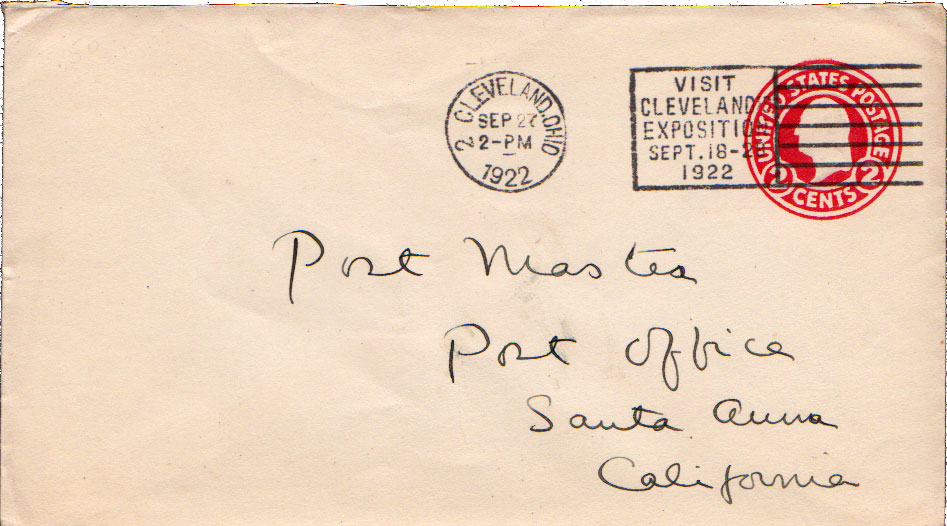 2 CLEVELAND, OHIO
SEP 27
2-PM
1922
VISIT
CLEVELAND'S
EXPOSITION
SEPT. 18-2
1922
UNITED STATES POSTAGE
2 CENTS 2
Post Master
Post Office
Santa Anna
California